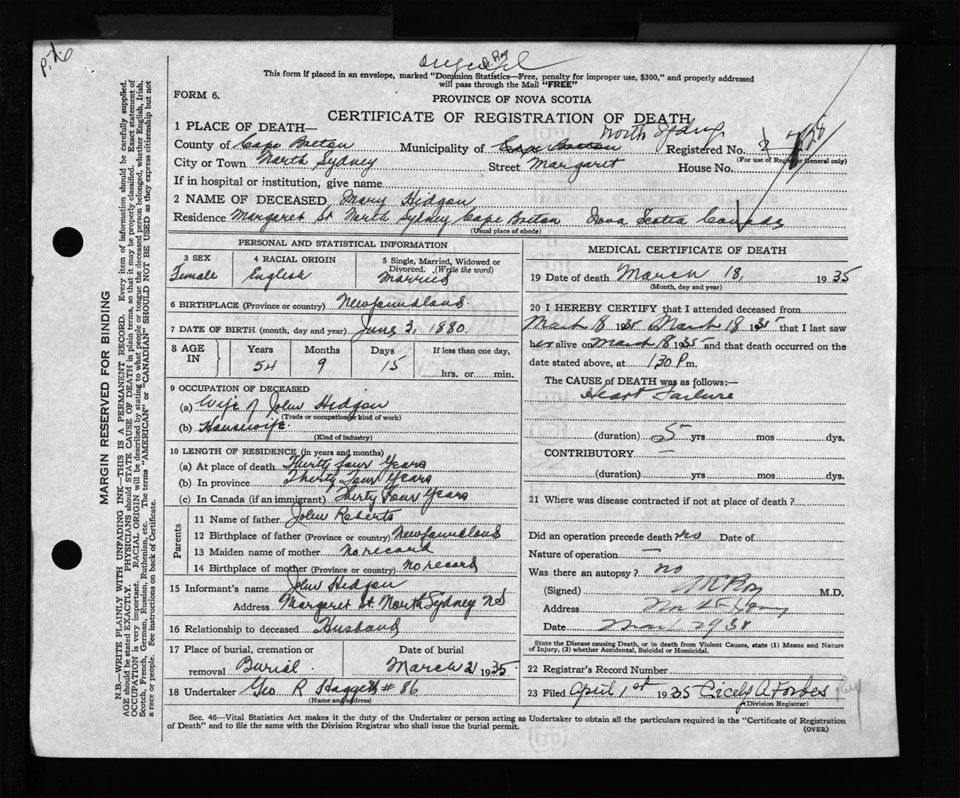 P. 26
D. Roy
This form if placed in an envelope, marked "Dominion Statistics—Free, penalty for improper use, $300," and properly addressed
will pass through the Mail "FREE"
FORM 6.
PROVINCE OF NOVA SCOTIA
CERTIFICATE OF REGISTRATION OF DEATH
1 PLACE OF DEATH—
North Sydney
County of Cape Breton Municipality of Cape Breton Registered No.
(For use of Registrar General only)
City or Town North Sydney Street Margaret House No.
If in hospital or institution, give name
2 NAME OF DECEASED Mary Hidgon
Residence Margaret St North Sydney Cape Breton Nova Scotia Canada
(Usual place of abode)
PERSONAL AND STATISTICAL INFORMATION
3 SEX 4 RACIAL ORIGIN 5 Single, Married, Widowed or
Divorced. (Write the word)
Female English Married
6 BIRTHPLACE (Province or country) Newfoundland
7 DATE OF BIRTH (month, day and year) June 3, 1880
8 AGE IN Years Months Days If less than one day,
54 9 15 hrs. or min.
9 OCCUPATION OF DECEASED
(a) Wife of John Hidgon
(Trade or occupation or kind of work)
(b) Housewife
(Kind of industry)
10 LENGTH OF RESIDENCE (in years and months)
(a) At place of death Thirty Four Years
(b) In province Thirty Four Years
(c) In Canada (if an immigrant) Thirty Four Years
Parents
11 Name of father John Roberts
12 Birthplace of father (Province or country) Newfoundland
13 Maiden name of mother No record
14 Birthplace of mother (Province or country) no record
15 Informant's name John Hidgon
Address Margaret St North Sydney NS
16 Relationship to deceased Husband
17 Place of burial, cremation or Date of burial
removal Burial March 21 1935
18 Undertaker Geo R Haggett # 86
(Name and address)
MEDICAL CERTIFICATE OF DEATH
19 Date of death March 18, 1935
(Month, day and year)
20 I HEREBY CERTIFY that I attended deceased from
March 18 1935 March 18 1935 that I last saw
her alive on March 18 1935 and that death occurred on the
date stated above, at 1 30 P m.
The CAUSE of DEATH was as follows:—
Heart Failure
(duration) 5 yrs mos dys.
CONTRIBUTORY —
(duration) — yrs mos dys.
21 Where was disease contracted if not at place of death?
Did an operation precede death? no Date of
Nature of operation —
Was there an autopsy? no
(Signed) M.D.
Address
Date
State the Disease causing Death, or in death from Violent Causes, state (1) Means and Nature
of Injury, (2) whether Accidental, Suicidal or Homicidal.
22 Registrar's Record Number
23 Filed April 1st 1935 Cicely A Forbes
(Division Registrar)
Sec. 46—Vital Statistics Act makes it the duty of the Undertaker or person acting as Undertaker to obtain all the particulars required in the "Certificate of Registration
of Death" and to file the same with the Division Registrar who shall issue the burial permit. (OVER)
MARGIN RESERVED FOR BINDING
N.B.—WRITE PLAINLY WITH UNFADING INK—THIS IS A PERMANENT RECORD. Every item of information should be carefully supplied.
AGE should be stated EXACTLY. PHYSICIANS should STATE CAUSE OF DEATH in plain terms, so that it may be properly classified. Exact statement of
OCCUPATION is very important. RACIAL ORIGIN will be described by stating to what people or tongue the deceased person belonged, whether English, Irish,
Scotch, French, German, Russian, Ruthenian, etc. The terms "AMERICAN" or "CANADIAN" SHOULD NOT BE USED as they express citizenship but not
a race or people. See instructions on back of Certificate.